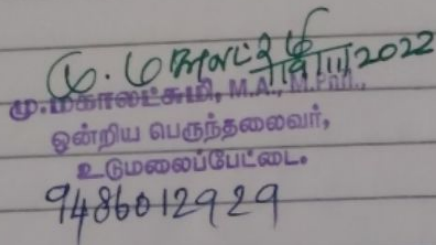 மு. மகாலட்சுமி
மு.மகாலட்சுமி, M.A., M.Phil.,
ஒன்றிய பெருந்தலைவர்,
உடுமலைப்பேட்டை.
9486012929